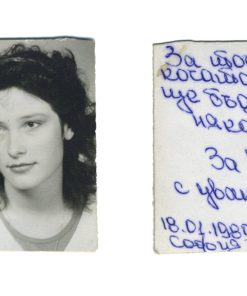 За то
когато
ще бъ
няко
За
с ува
18.01.198
София